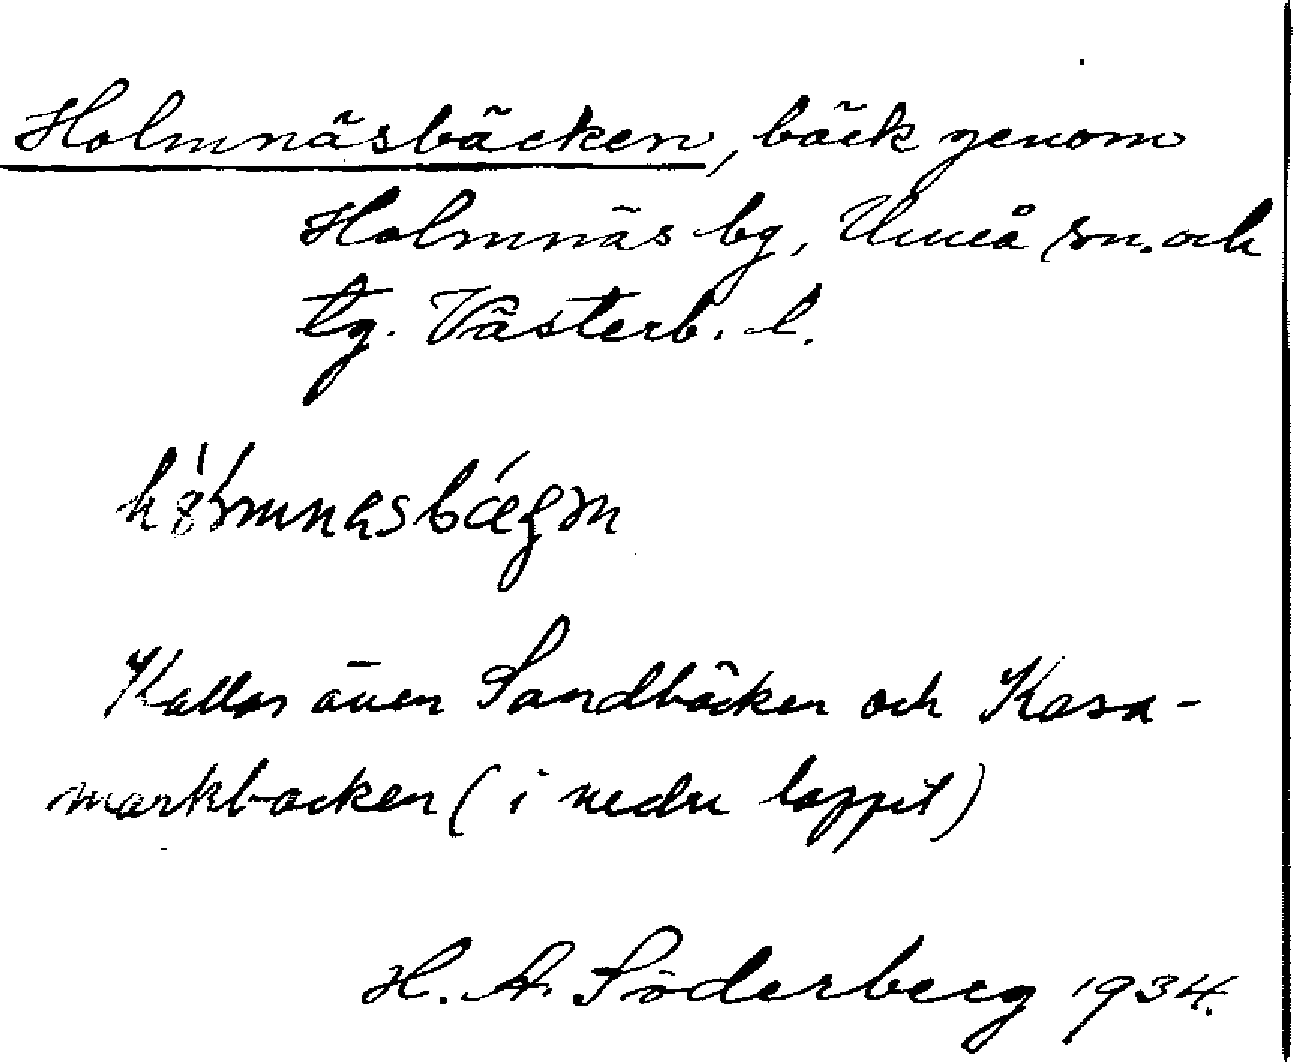 Holmnäsbäcken, bäck genom
Holmnäs by, Umeå sn. och
tg. Västerb. l.
Kallas även Sandbäcken och Kasa-
markbäcken (i nedre loppet)
H. A. Söderberg 1934.